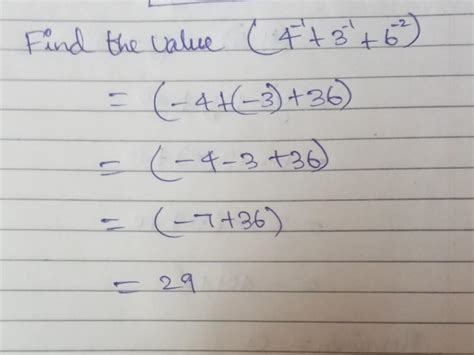 Find the value (4⁻¹+3⁻¹+6⁻²)
= (-4+(-3)+36)
= (-4-3+36)
= (-7+36)
= 29